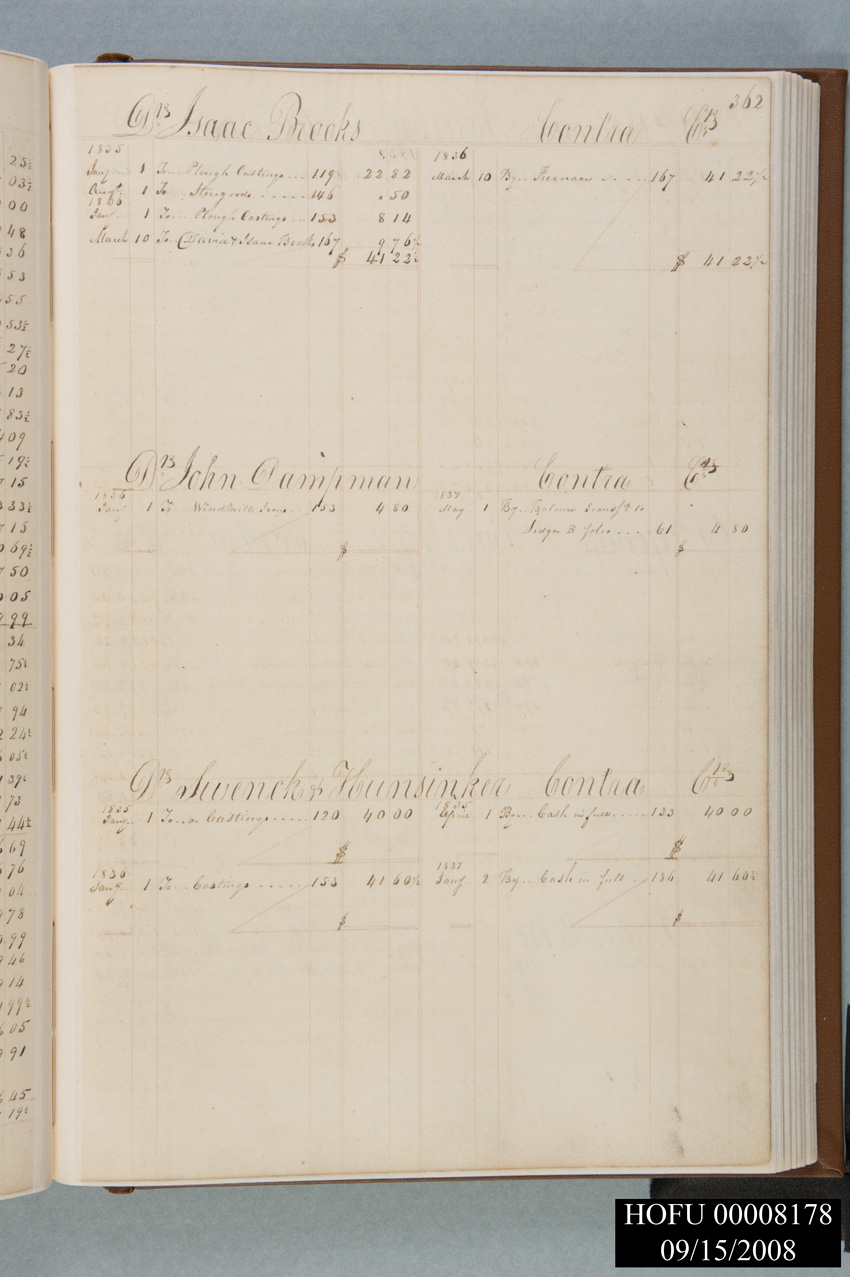 362
Drs Isaac Brooks Contra Crs
1835
Jany 1 To Plough Castings 119 22 82
Augt 1 To 146 . 50
1836
Jany 1 To Plough Castings 153 8 14
March 10 To David & Isaac Brooks 167 9 76½
$ 41 22½
1836
March 10 By Furnace 167 41 22½
$ 41 22½
Drs John Dampman Contra Crs
1836
Jany 1 To Windmill Irons 153 4 80
$
137
May 1 By Balance Transft to
Ledger B folio 61 4 80
$
Drs Swenck & Hunsinker Contra Crs
1835
Jany 1 To Castings 120 40 00
$
1836
Jany 1 To Castings 153 41 60½
$
1835
Aprill 1 By Cash in full 133 40 00
$
1837
Jany 2 By Cash in full 186 41 60½
$
25½
03½
00
48
36
53
55
53½
27½
20
13
83½
409
19½
15
33½
15
69½
50
05
99
34
75½
02½
94
24½
05½
39½
73
44½
69
76
04
78
99
46
14
99½
05
91
45
19½
HOFU 00008178
09/15/2008